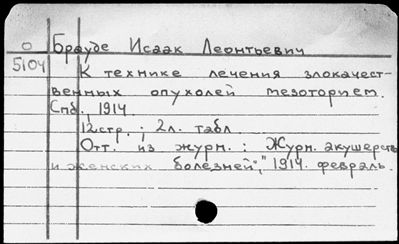 О Брауде Исаак Леонтьевич
5104
К технике лечения злокачест-
венных опухолей мезоторием.
Спб., 1914.
12.стр.; 2л. табл.
Отт. из журн.: Журн. акушерств
и женских болезней", 1914. февраль.